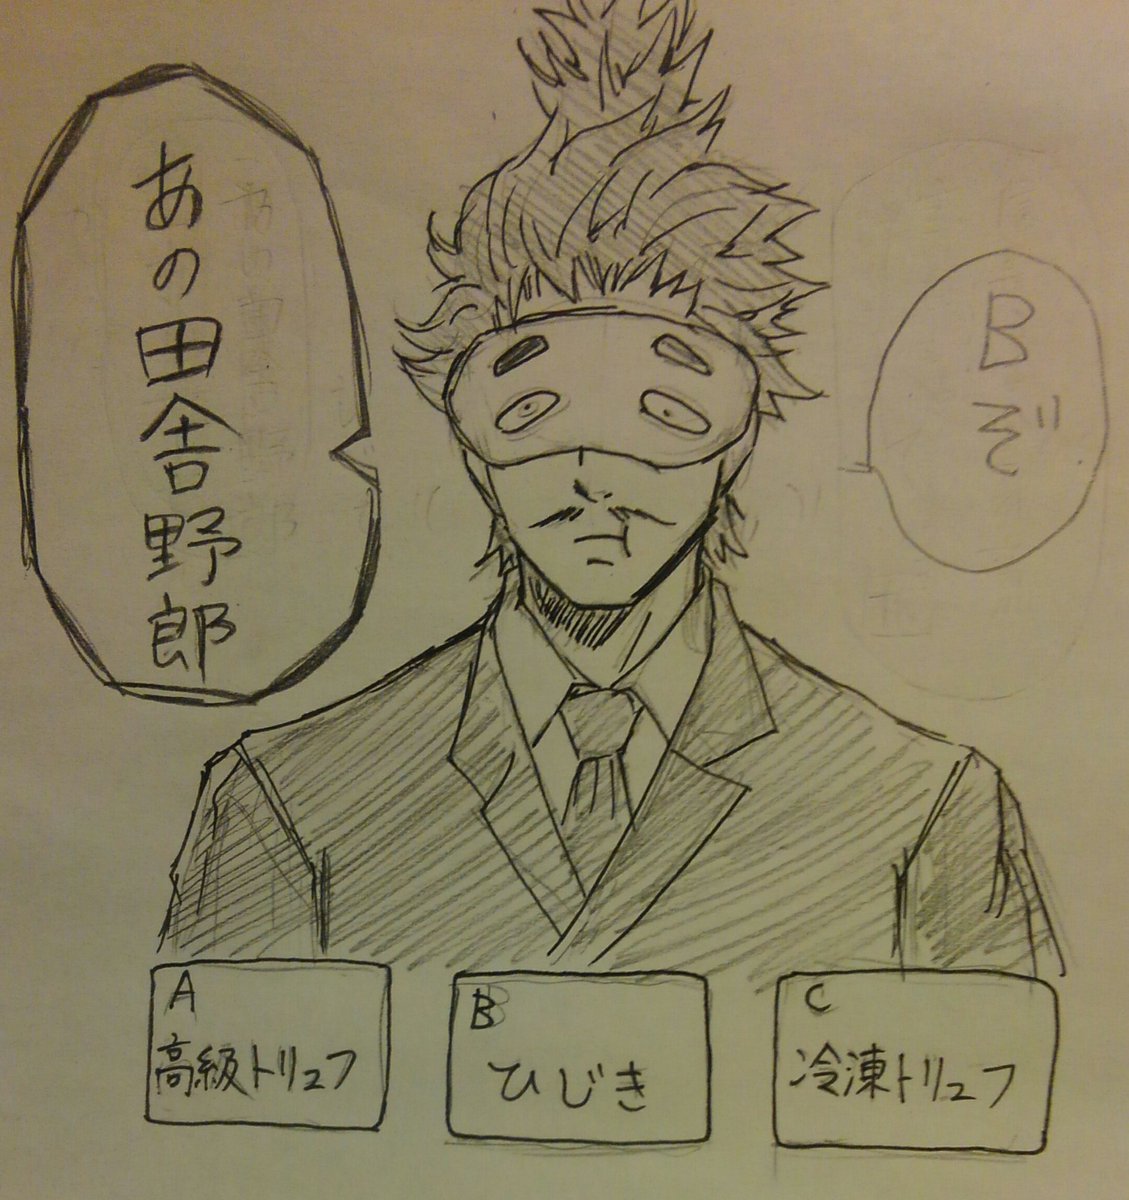 Bぞ
あの田舎野郎
A
高級トリュフ
B
ひじき
C
冷凍トリュフ